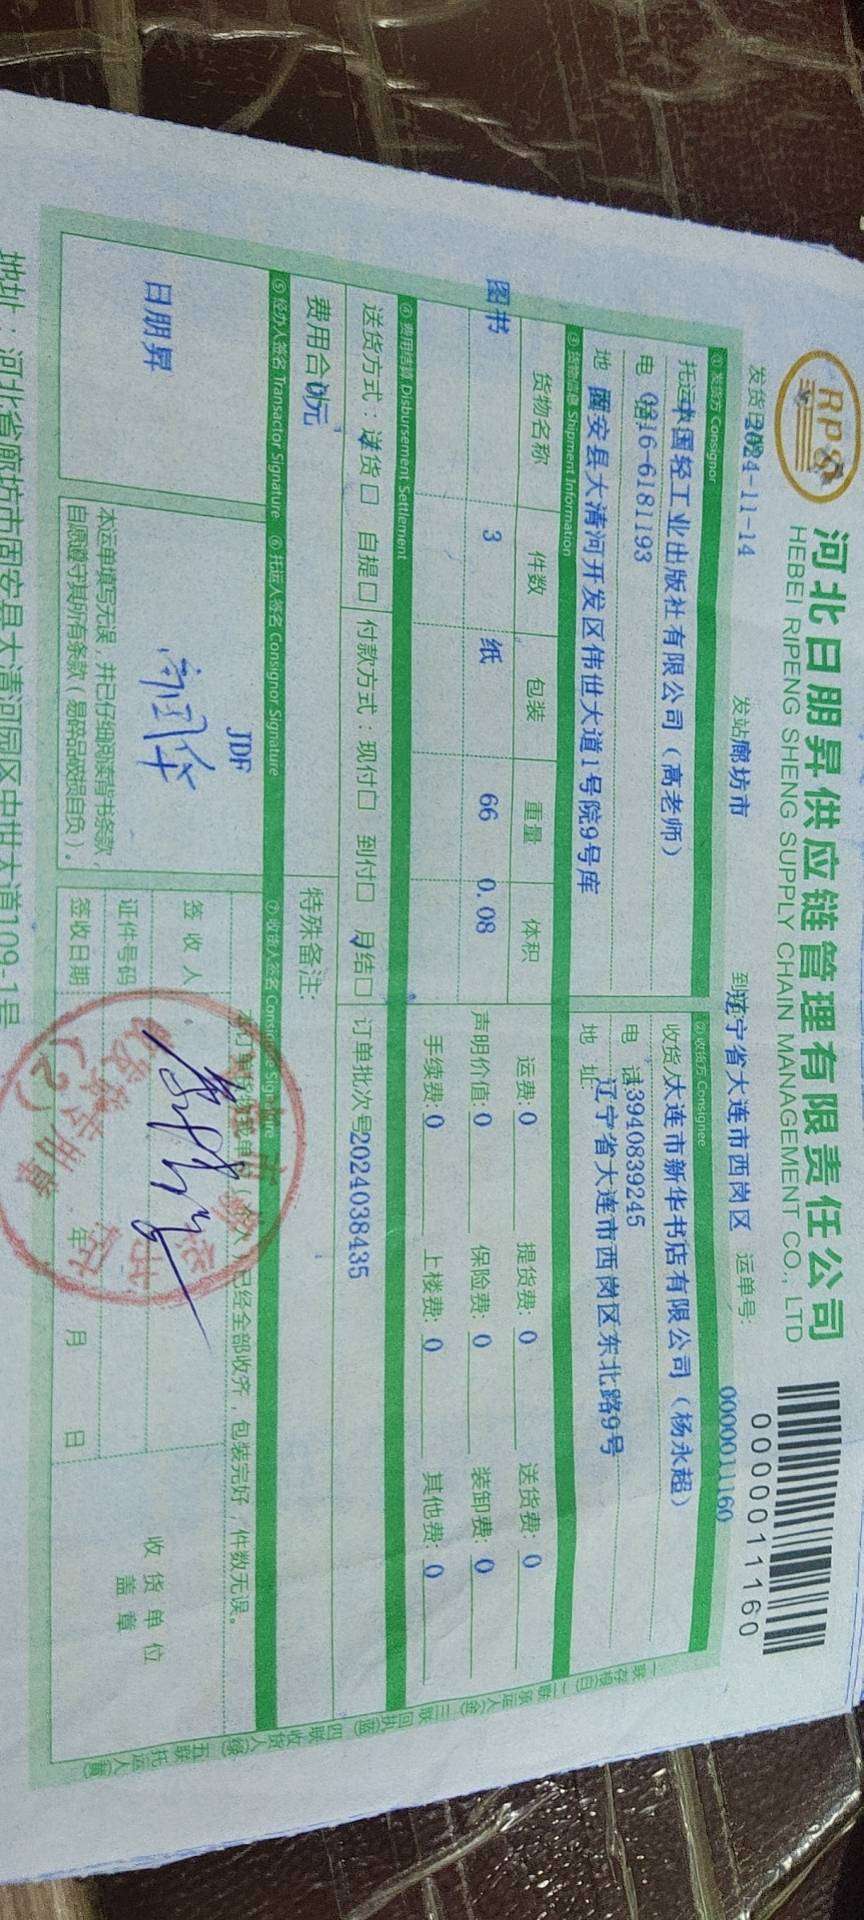 RPS
河北日朋昇供应链管理有限责任公司
HEBEI RIPENG SHENG SUPPLY CHAIN MANAGEMENT CO., LTD
0000011160
发货日期 2024-11-14 发站 廊坊市 到站 辽宁省大连市西岗区 运单号: 0000011160
① 发货方 Consignor ② 收货方 Consignee
托运人 中国轻工业出版社有限公司（高老师） 收货人 大连市新华书店有限公司（杨永超）
电 话 0316-6181193 电 话 13940839245
地 址 固安县大清河开发区伟世大道1号院9号库 地 址: 辽宁省大连市西岗区东北路9号
③ 货物信息 Shipment Information
货物名称 件数 包装 重量 体积 运费: 0 提货费: 0 送货费: 0
图书 3 纸 66 0.08 声明价值: 0 保险费: 0 装卸费: 0
手续费: 0 上楼费: 0 其他费: 0
④ 费用结算 Disbursement Settlement
送货方式：送货□ 自提□ 付款方式：现付□ 到付□ 月结□ 订单批次号 2024038435
费用合计 0元 特殊备注:
⑤ 经办人签名 Transactor Signature ⑥ 托运人签名 Consignor Signature ⑦ 收货人签名 Consignee Signature
JDF
日朋昇
本运单填写无误，并已仔细阅读背书条款，
自愿遵守其所有条款（易碎品破损自负）。
已经全部收齐，包装完好，件数无误。
签 收 人
证件号码
签收日期 年 月 日
收 货 单 位
盖 章
一联存根(白) 二联承运人(金) 三联回执(蓝) 四联收货人(绿) 五联托运人(黄)
地址：河北省廊坊市固安县大清河园区中柑大道109-1号